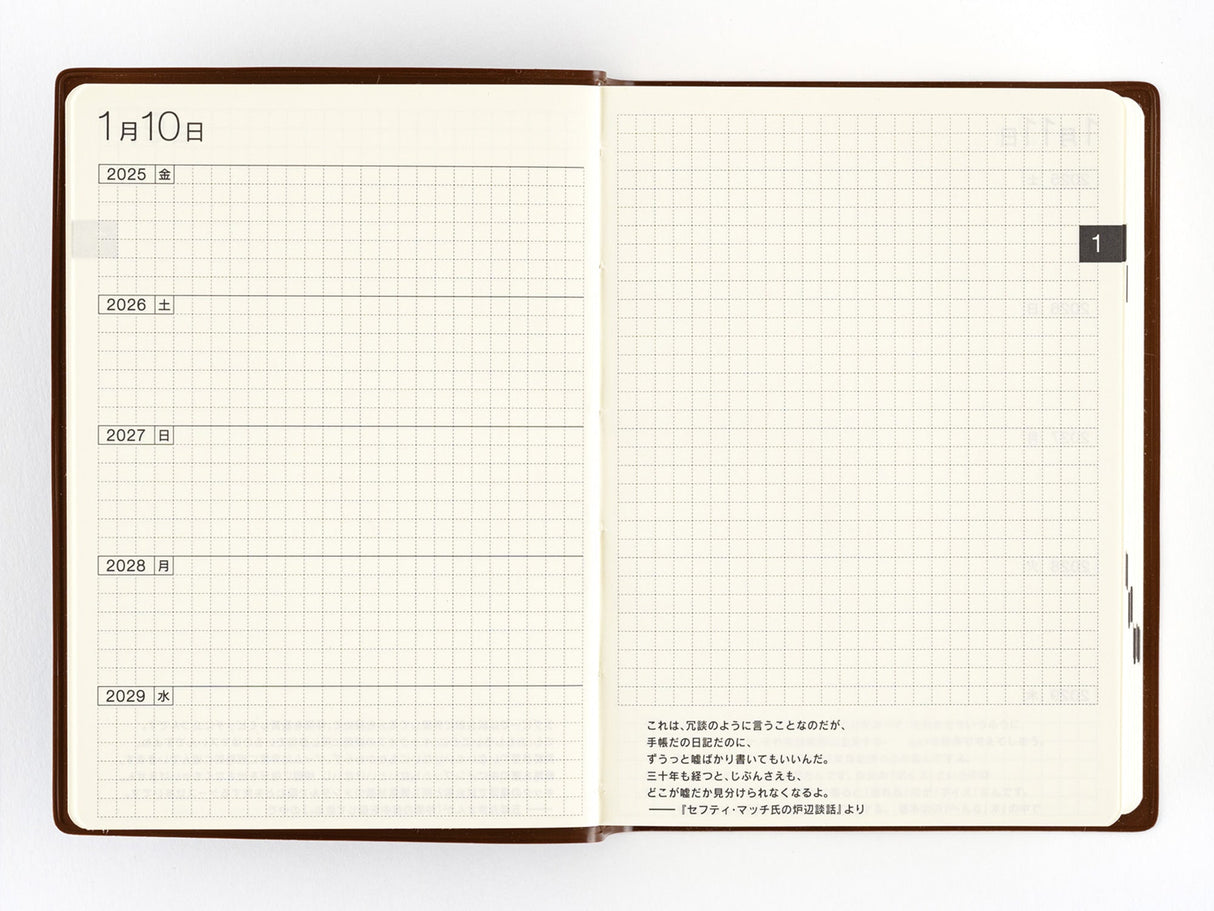 1月10日
2025 金
2026 土
2027 日
2028 月
2029 水
1
これは、冗談のように言うことなのだが、
手帳だの日記だのに、
ずうっと嘘ばかり書いてもいいんだ。
三十年も経つと、じぶんさえも、
どこが嘘だか見分けられなくなるよ。
──『セフティ・マッチ氏の炉辺談話』より